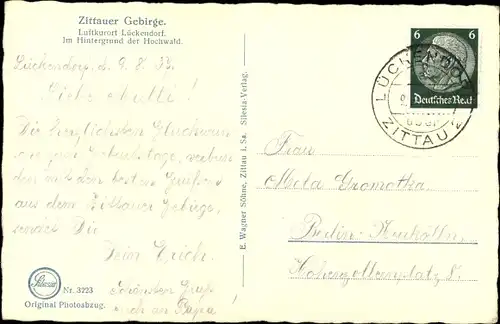 Zittauer Gebirge.
Luftkurort Lückendorf.
Im Hintergrund der Hochwald.
Lückendorf, d. 9. 8.
Liebe Mutti!
Die herzlichsten Glückwün
Geburtstage, verbun
den mit den besten Grüßen
aus dem Zittauer Gebirge,
sendet Dir
Dein Erich.
Schönsten Gruß
auch an Papa!
Nr. 3723
Original Photoabzug.
E. Wagner Söhne, Zittau i. Sa. Silesia-Verlag.
6 6
Deutsches Reich
LÜCKENDORF
ZITTAU 2
Frau
Meta Gromotka
Berlin-Neukölln
Hohenzollernplatz 8.